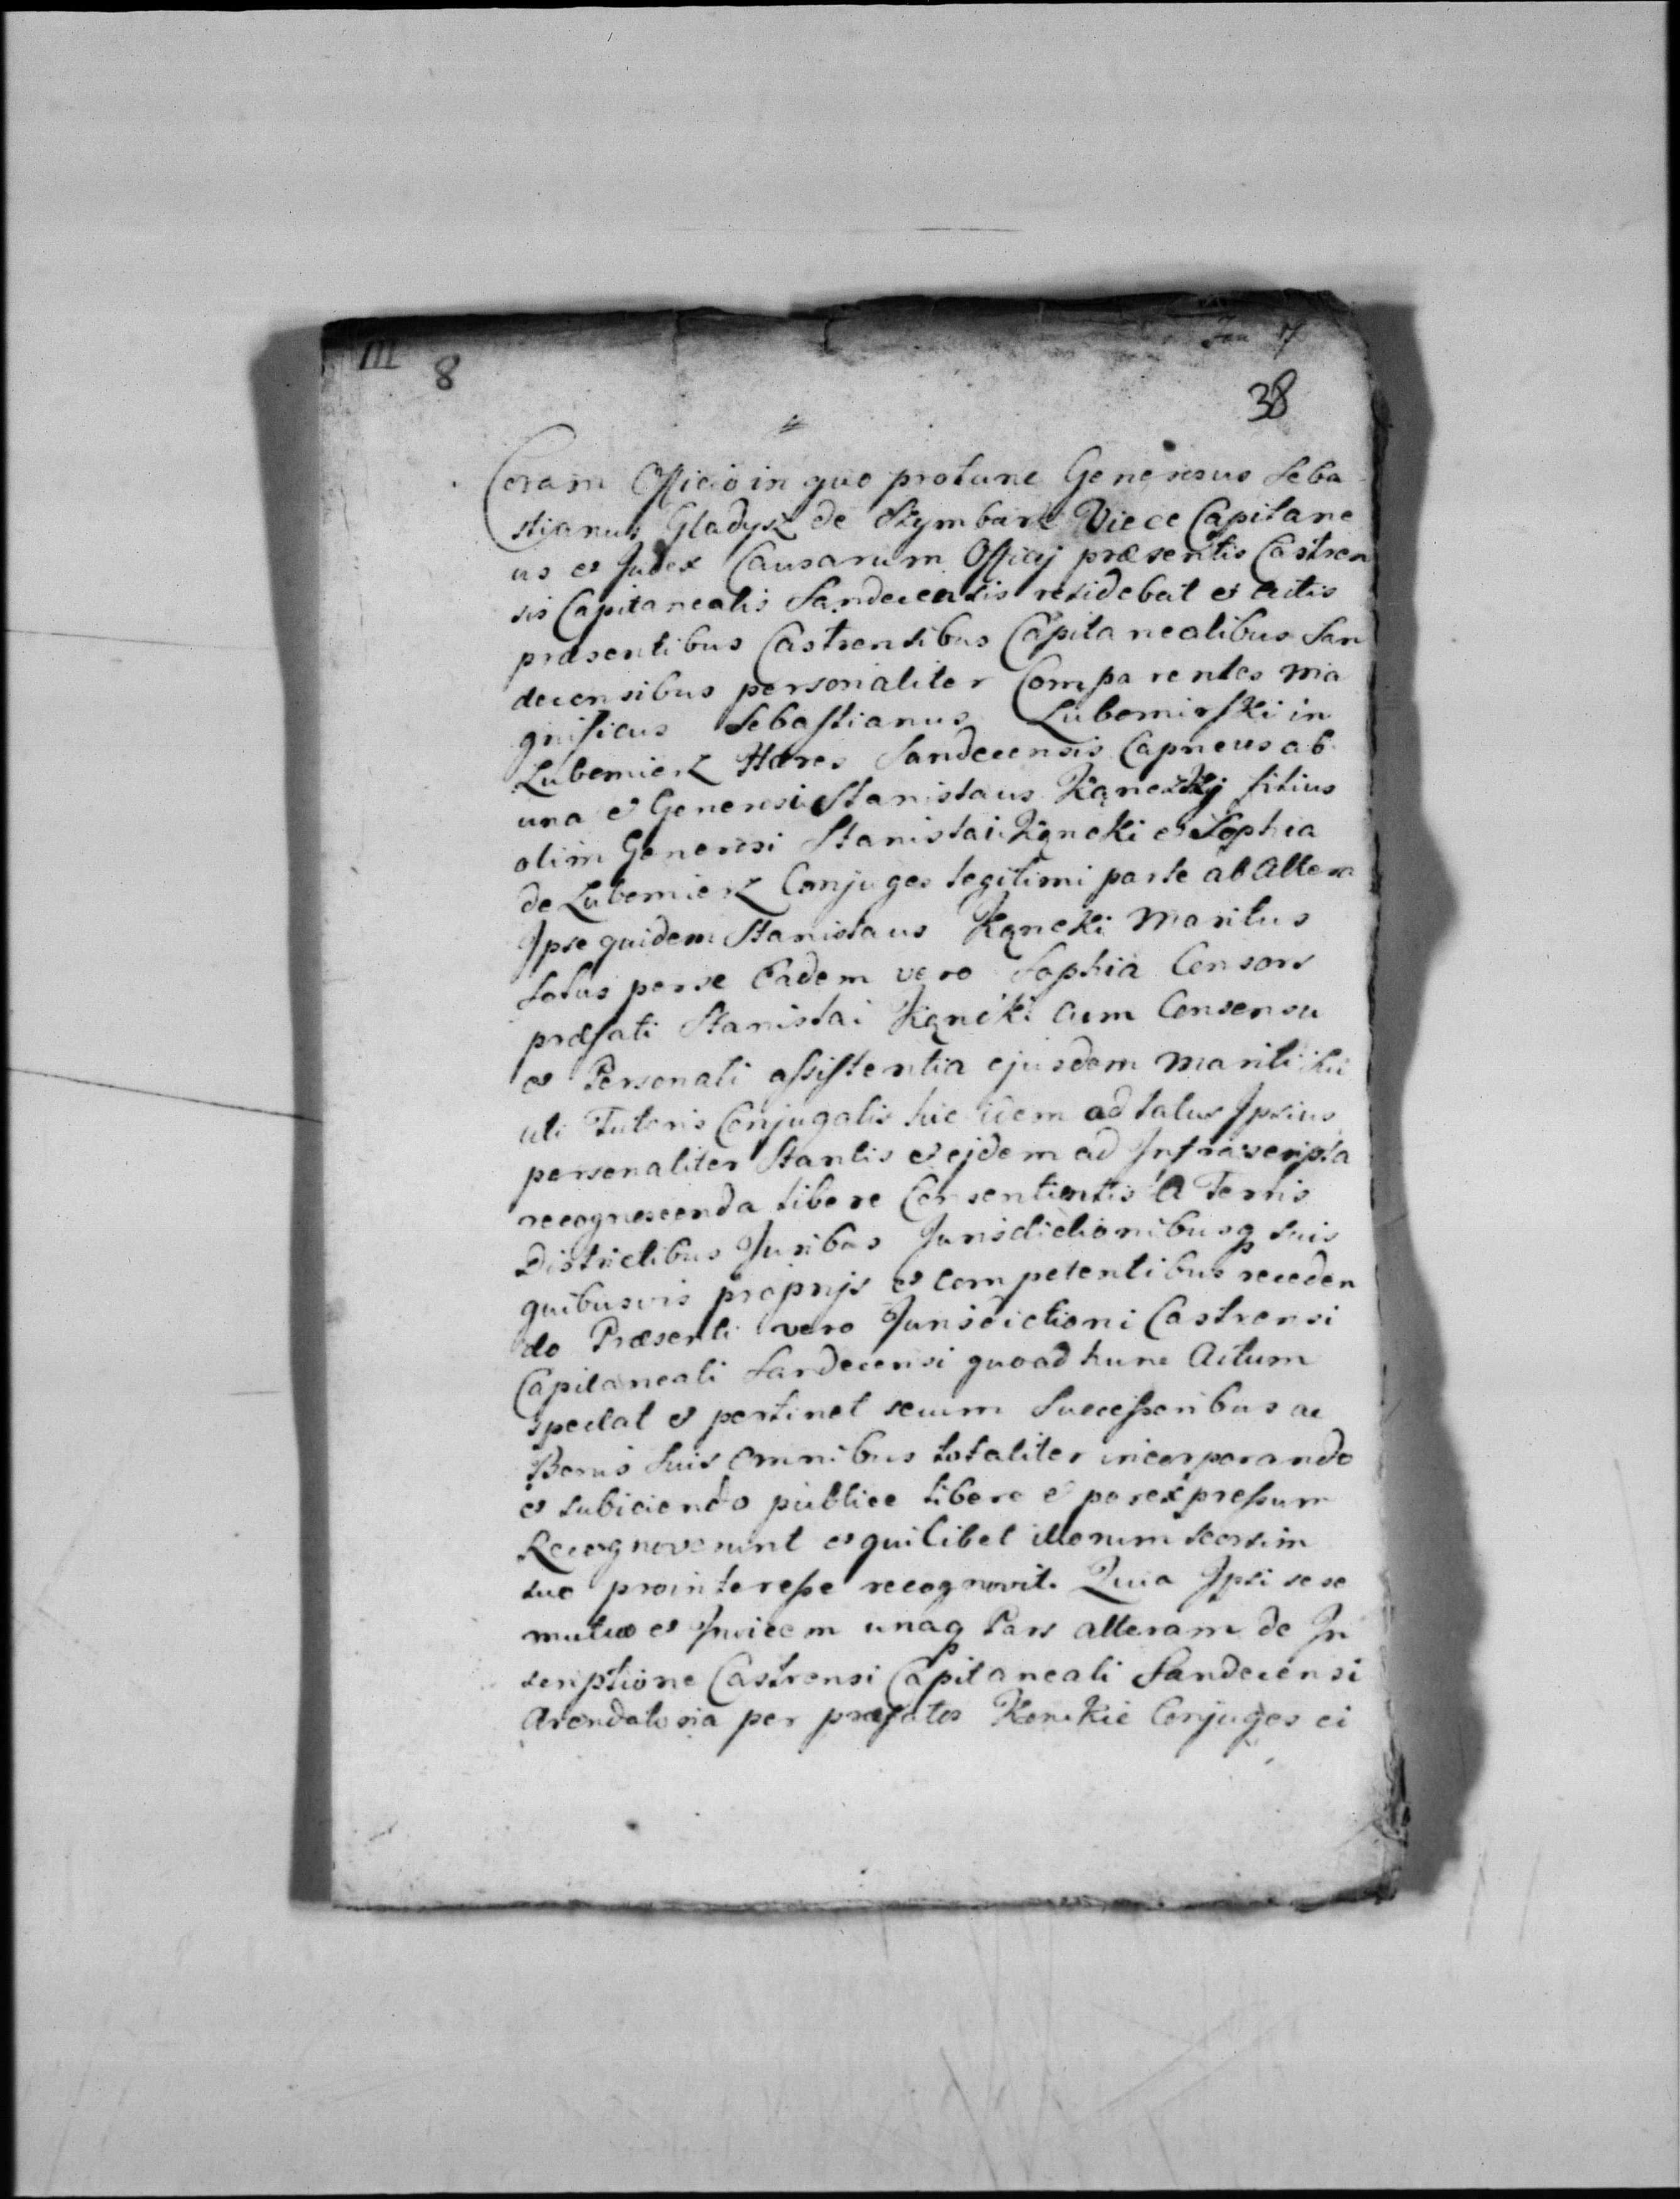 m 8
38
Coram Officio in quo protunc Generosus Seba
stianus Gladysz de Szymbark Viece Capitane
us et Judex Causarum Officij præsentis Castren
sis Capitanealis Sandecensis residebat et Actis
præsentibus Castrensibus Capitanealibus San
decensibus personaliter Comparentes Ma
gnificus Sebastianus Lubomirski in
Lubomierz Hæres Sandecensis Capneus ab
una et Generosi Stanislaus Kąnczkÿ filius
olim Generosi Stanislai Kąncki et Sophia
de Lubomierz Conjuges legitimi parte ab Altera
Ipse quidem Stanislaus Kąncki Maritus
Solus per se Eadem vero Sophia Consors
præfati Stanislai Kąncki cum Consensu
et Personali assistentia ejusdem Mariti sui
uti Tutoris Conjugalis hic idem ad latus Ipsius
personaliter Stantis et ejdem ad Infrascripta
recognoscenda libere Consentientis A Terris
Districtibus Juribus Jurisdictionibusq suis
quibusvis proprijs et competentibus receden
do Præsenti vero Jurisdictioni Castrensi
Capitaneali Sandecensi quoad hunc Actum
spectat et pertinet secum Successoribus ac
Bonis suis omnibus totaliter incorporando
et subiciendo publice libere et per expressum
Recognoverunt et quilibet illorum seorsim
suo prointeresse recognovit. Quia Ipsi sese
mutuo et Invicem unaq Pars alteram de In
scriptione Castrensi Capitaneali Sandecensi
Arendatoria per præfatos Konckie Conjuges ei